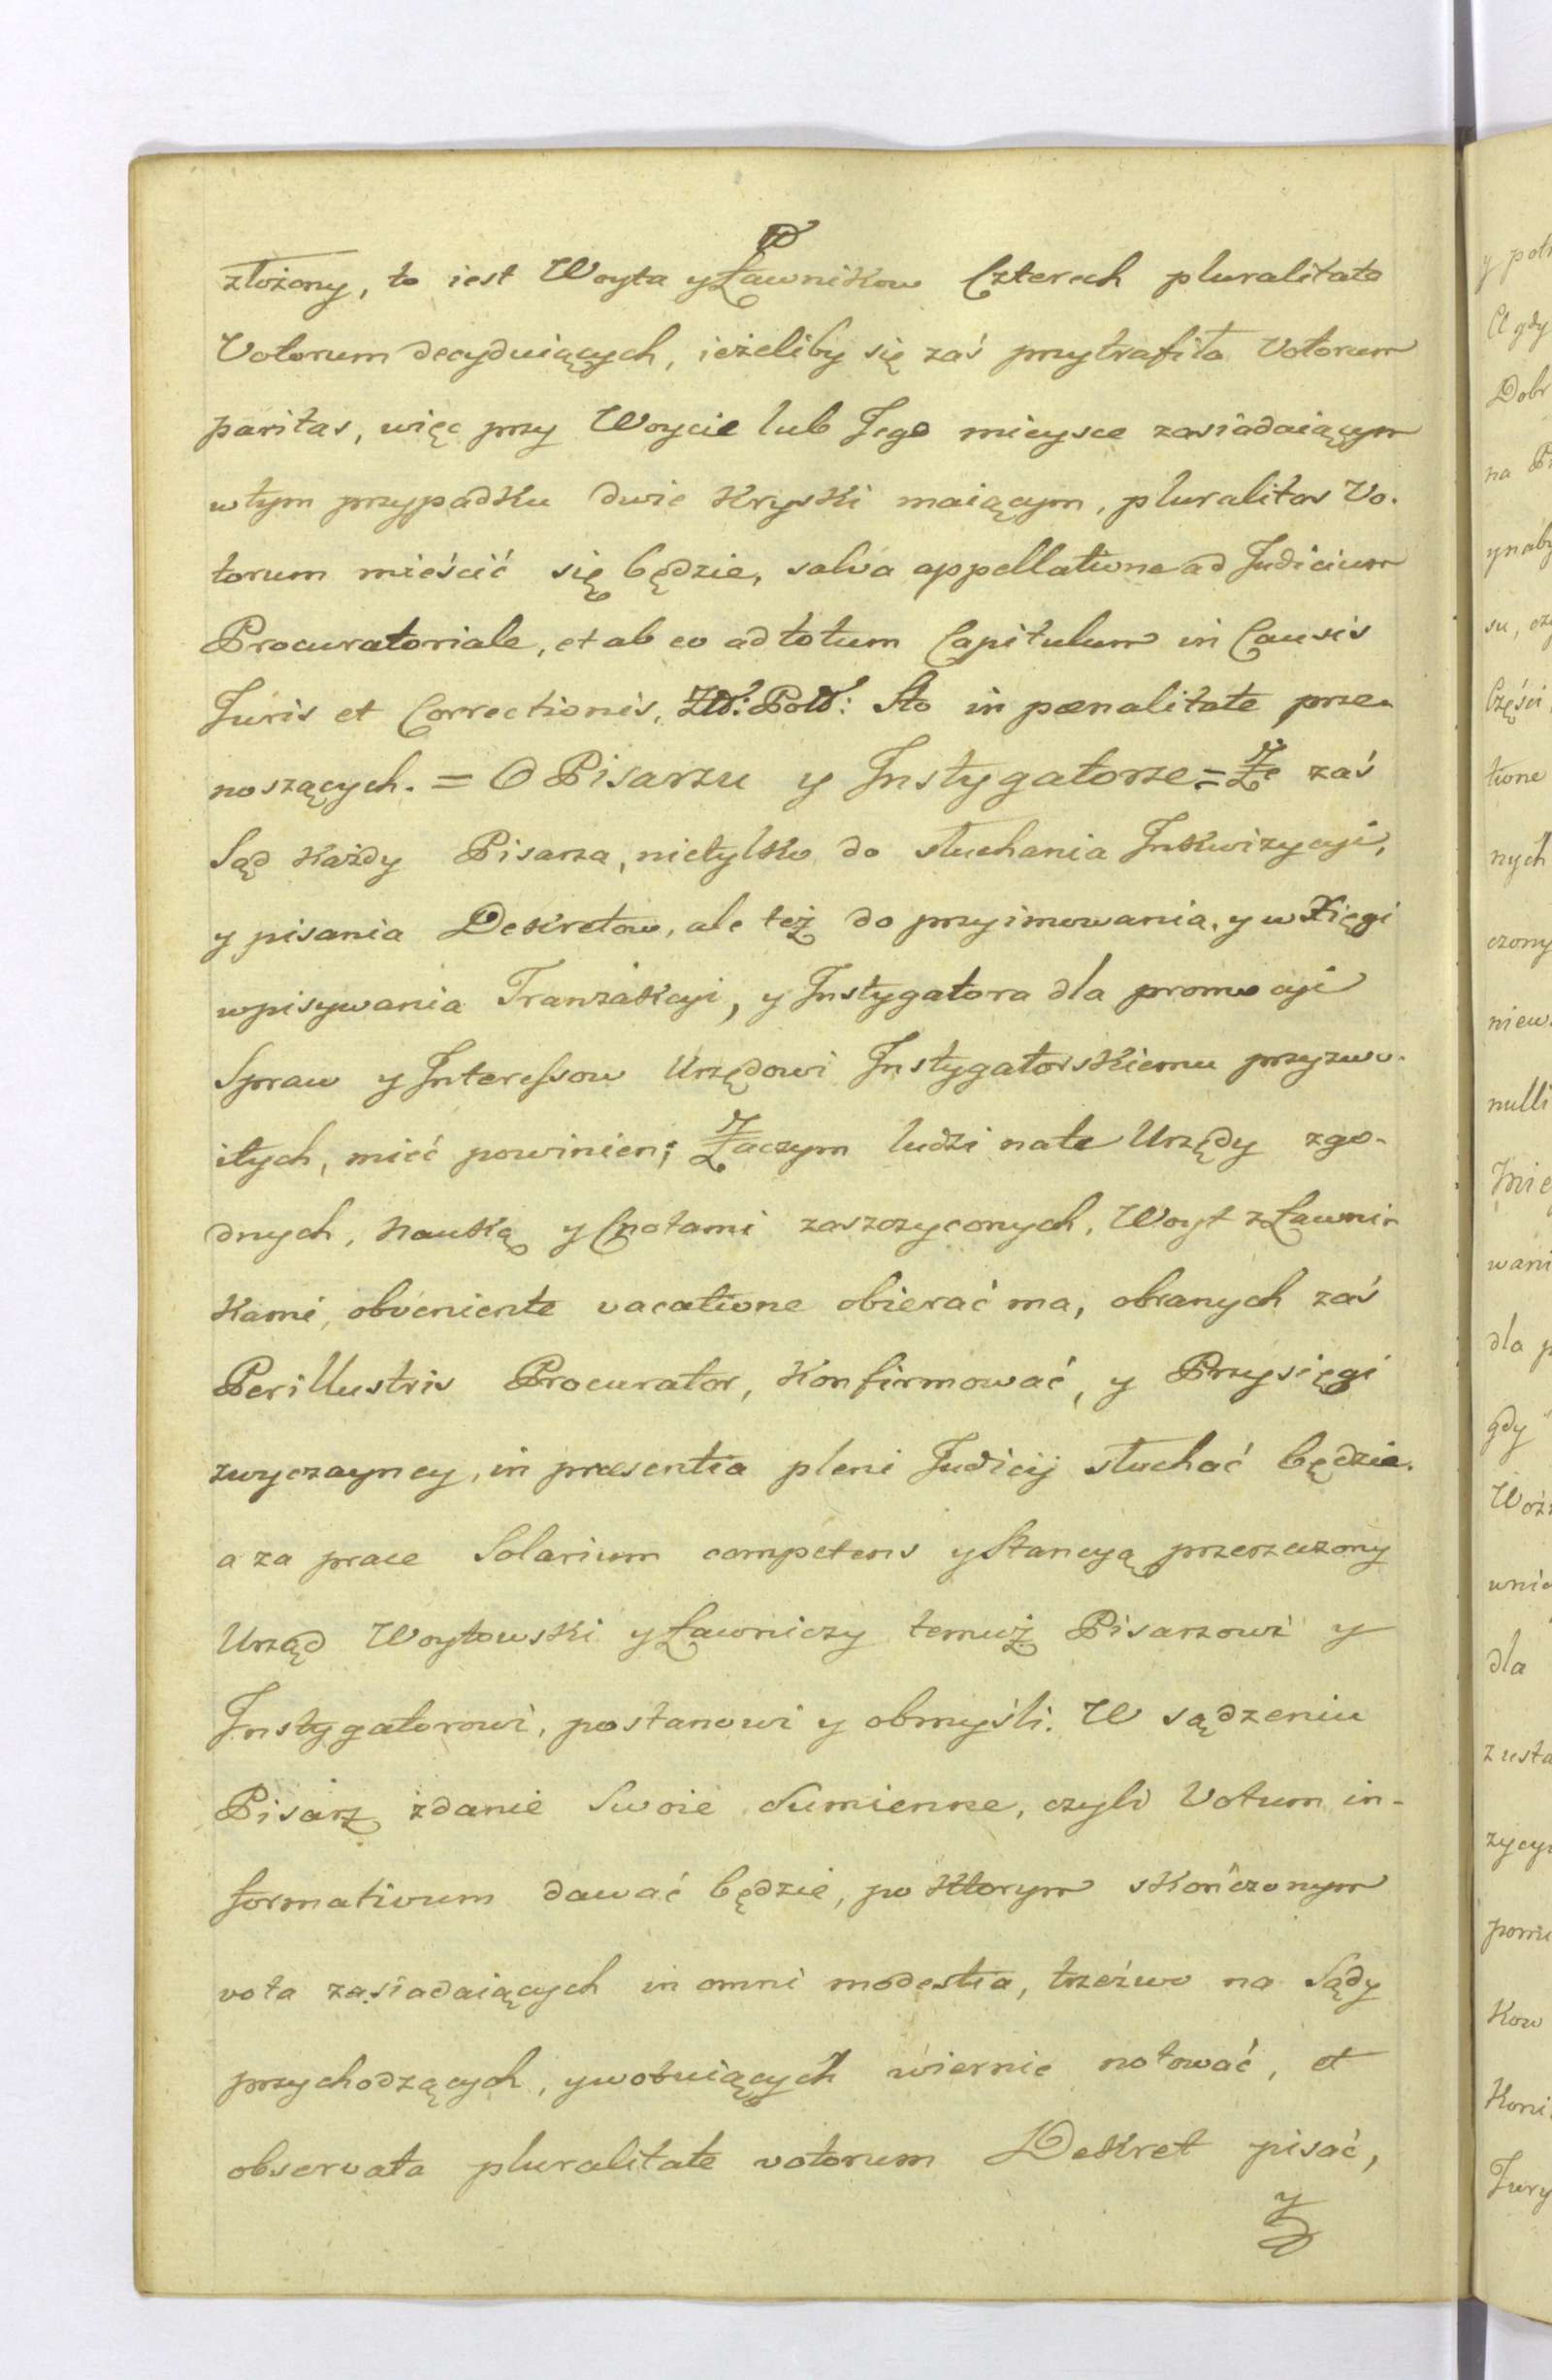 złożony, to iest Woyta y Ławnikow Czterech pluralitate
Votorum decyduiących, ieżeliby się zaś przytrafiła Votorum
paritas, więc przy Woycie lub Jego mieysce zasiadaiącym
w tym przypadku dwie Kryski maiącym, pluralitas Vo-
torum mieścić się będzie, salva appellatione ad Judicium
Procuratoriale, et ab eo ad totum Capitulum in Causis
Juris et Correctionis, Sto in pœnalitate prze-
noszących. = O Pisarzu y Instygatorze = Że zaś
Sąd Każdy Pisarza, nietylko do słuchania Inkwizycyi,
y pisania Dekretow, ale też do przyimowania, y w Xięgi
wpisywania Tranzakcyi, y Instygatora dla promocyi
Spraw y Interessow Urzędowi Instygatorskiemu przyzwo-
itych, mieć powinien; Zaczym ludzi na te Urzędy zgo-
dnych, Nauką y Cnotami zaszczyconych, Woyt z Ławni-
Kami, obveniente vacatione obierać ma, obranych zaś
Perillustris Procurator, Konfirmować, y Przysięgi
zwyczayney, in præsentia pleni Judicij słuchać będzie.
a za prace Solarium competens y Stancyą przerzeczony
Urząd Woytowski y Ławniczy temuż Pisarzowi y
Instygatorowi, postanowi y obmyśli. W sądzeniu
Pisarz zdanie Swoie Sumienne, czyli Votum in-
formativum dawać będzie, po Ktorym skończonym
vota zasiadaiących in omni modestia, trzeźwo na Sądy
przychodzących, y wotuiących wiernie notować, et
observata pluralitate votorum Dekret pisać,
y